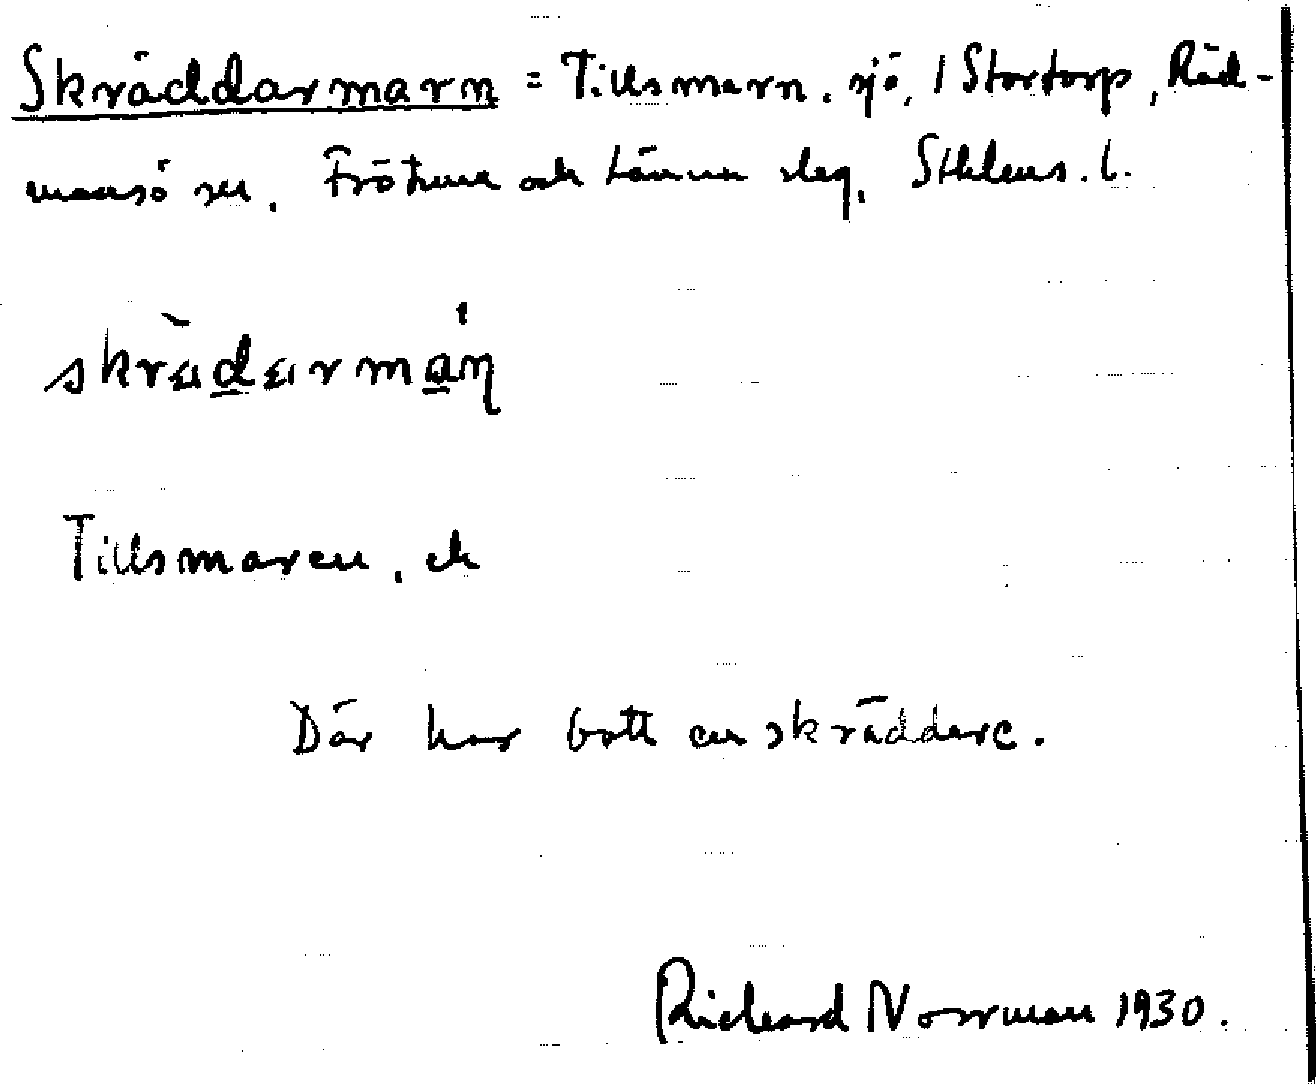 Skräddarmarn = Tillsmarn, sjö, / Stortorp, Råd-
mansö sn, Frötuna och Länna slag, Sthlms. l.
skràdarmán
Tillsmaren, ek
Där har bott en skräddare.
Richard Norrman 1930.